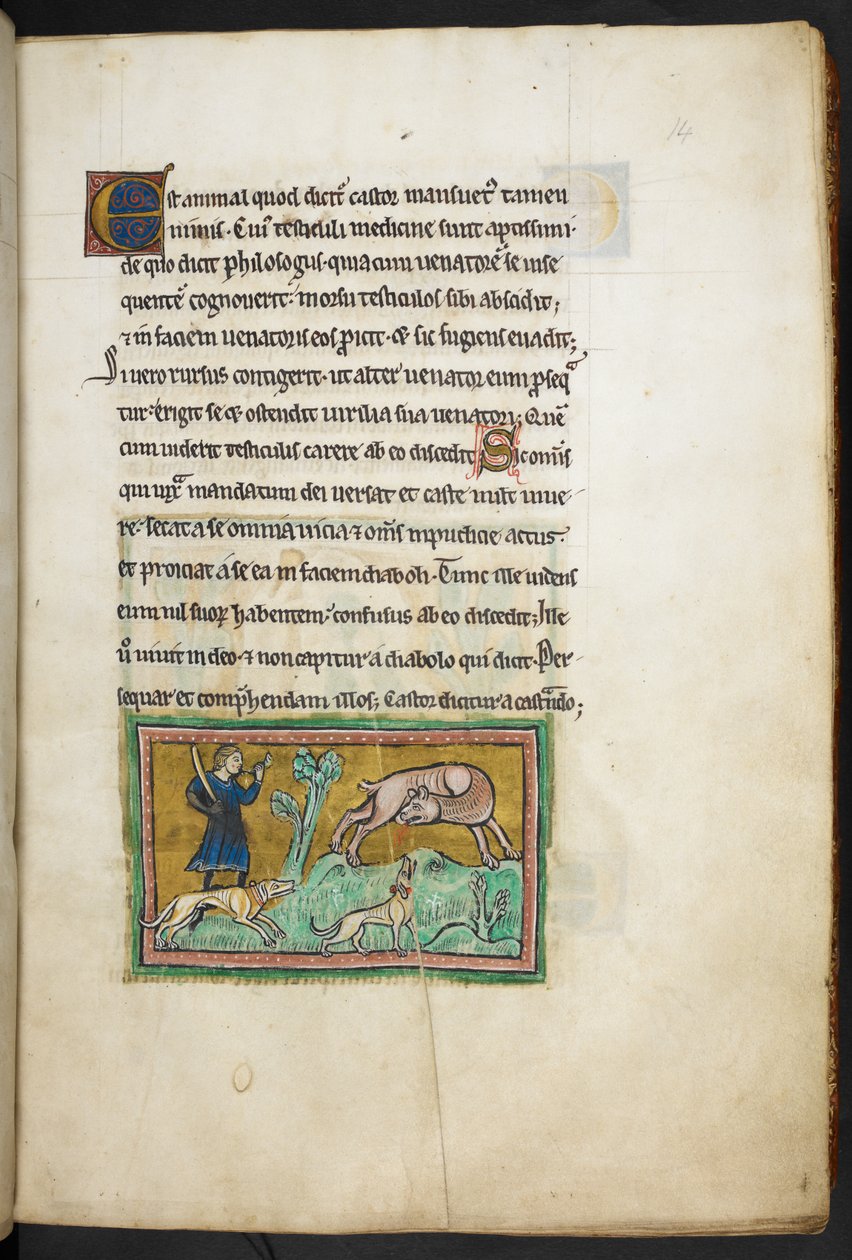 14
Est animal quod dicit͛ castor mansuet᷒ tamen
nimis · Cui᷒ testiculi medicine sunt aptissimi ·
de quo dicit phisologus · quia cum venatorē se inse
quentē cognoverit : morsu testiculos sibi abscidit ;
⁊ in faciem venatoris eos ꝓicit · & sic fugiens evadit ;
Si vero rursus contigerit · ut alter venator eum ꝑseqͣ
tur : erigit se & ostendit virilia sua venatori ; Quē
cum viderit testiculis carere ab eo discedit Sic om̄is
qui iuxͣ mandatum dei versat et caste vult vive-
re · secat a se omnia vicia ⁊ om̄s inpudicie actus :
et proiciat a se ea in faciem diaboli · Tunc ille videns
eum nil suoꝝ habentem : confusus ab eo discedit ; Ille
v̊ vivit in deo · ⁊ non capitur a diabolo qui dicit · Per-
sequar et comp̄hendam illos ; Castor dicitur a castᷓndo ;